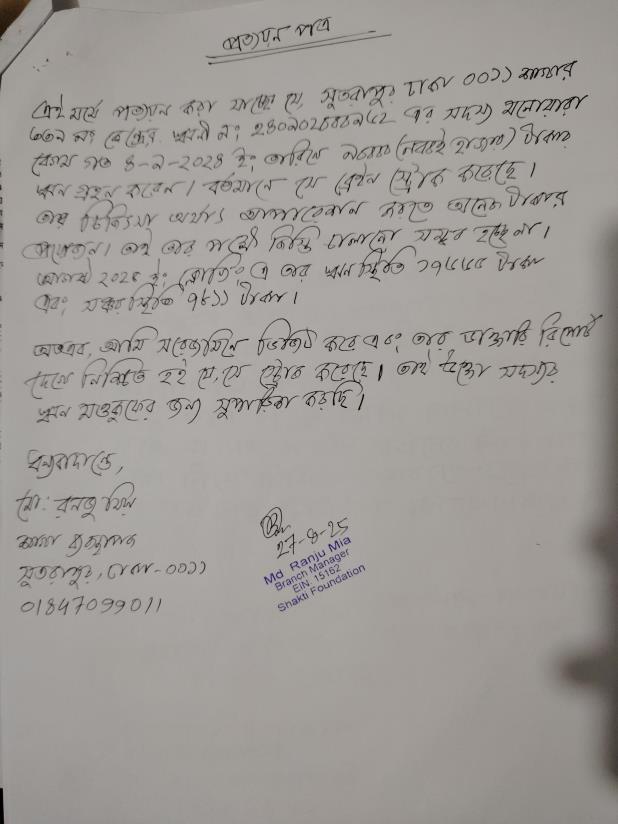 প্রত্যয়ন পত্র
এই মর্মে প্রত্যয়ন করা যাচ্ছে যে, সুতরাপুর ঢাকা ০০১১ শাখার
৩৩৯ নং কেন্দ্রের ঋণী নং এর সদস্য মনোয়ারা
বেগম গত ৪-৯-২০২৪ ইং তারিখে ৯০০০০ (নব্বই হাজার) টাকার
ঋন গ্রহন করেন। বর্তমানে সে ব্রেইন স্ট্রোক করেছে।
তার চিকিৎসা অর্থাৎ অপারেশন করতে অনেক টাকার
প্রয়োজন। তাই তার পক্ষে কিস্তি চালানো সম্ভব হচ্ছে না।
আগস্ট ইং এ তার ঋনস্থিতি টাকা
এবং সঞ্চয়স্থিতি ৭৮১১ টাকা।
অতএব, আমি সরেজমিনে ভিজিট করে এবং তার ডাক্তারি রিপোর্ট
দেখে নিশ্চিত হই যে, সে স্ট্রোক করেছে। তাই উক্ত সদস্যের
ঋন মওকুফের জন্য সুপারিশ করছি।
ধন্যবাদান্তে,
মো: রনজু মিয়া
শাখা ব্যবস্থাপক
সুতরাপুর, ঢাকা-০০১১
01847099011
27-8-25
Md. Ranju Mia
Branch Manager
EIN. 15162
Shakti Foundation